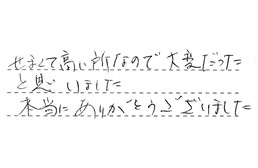 せまくて高い所なので大変だった
と思いました
本当にありがとうございました